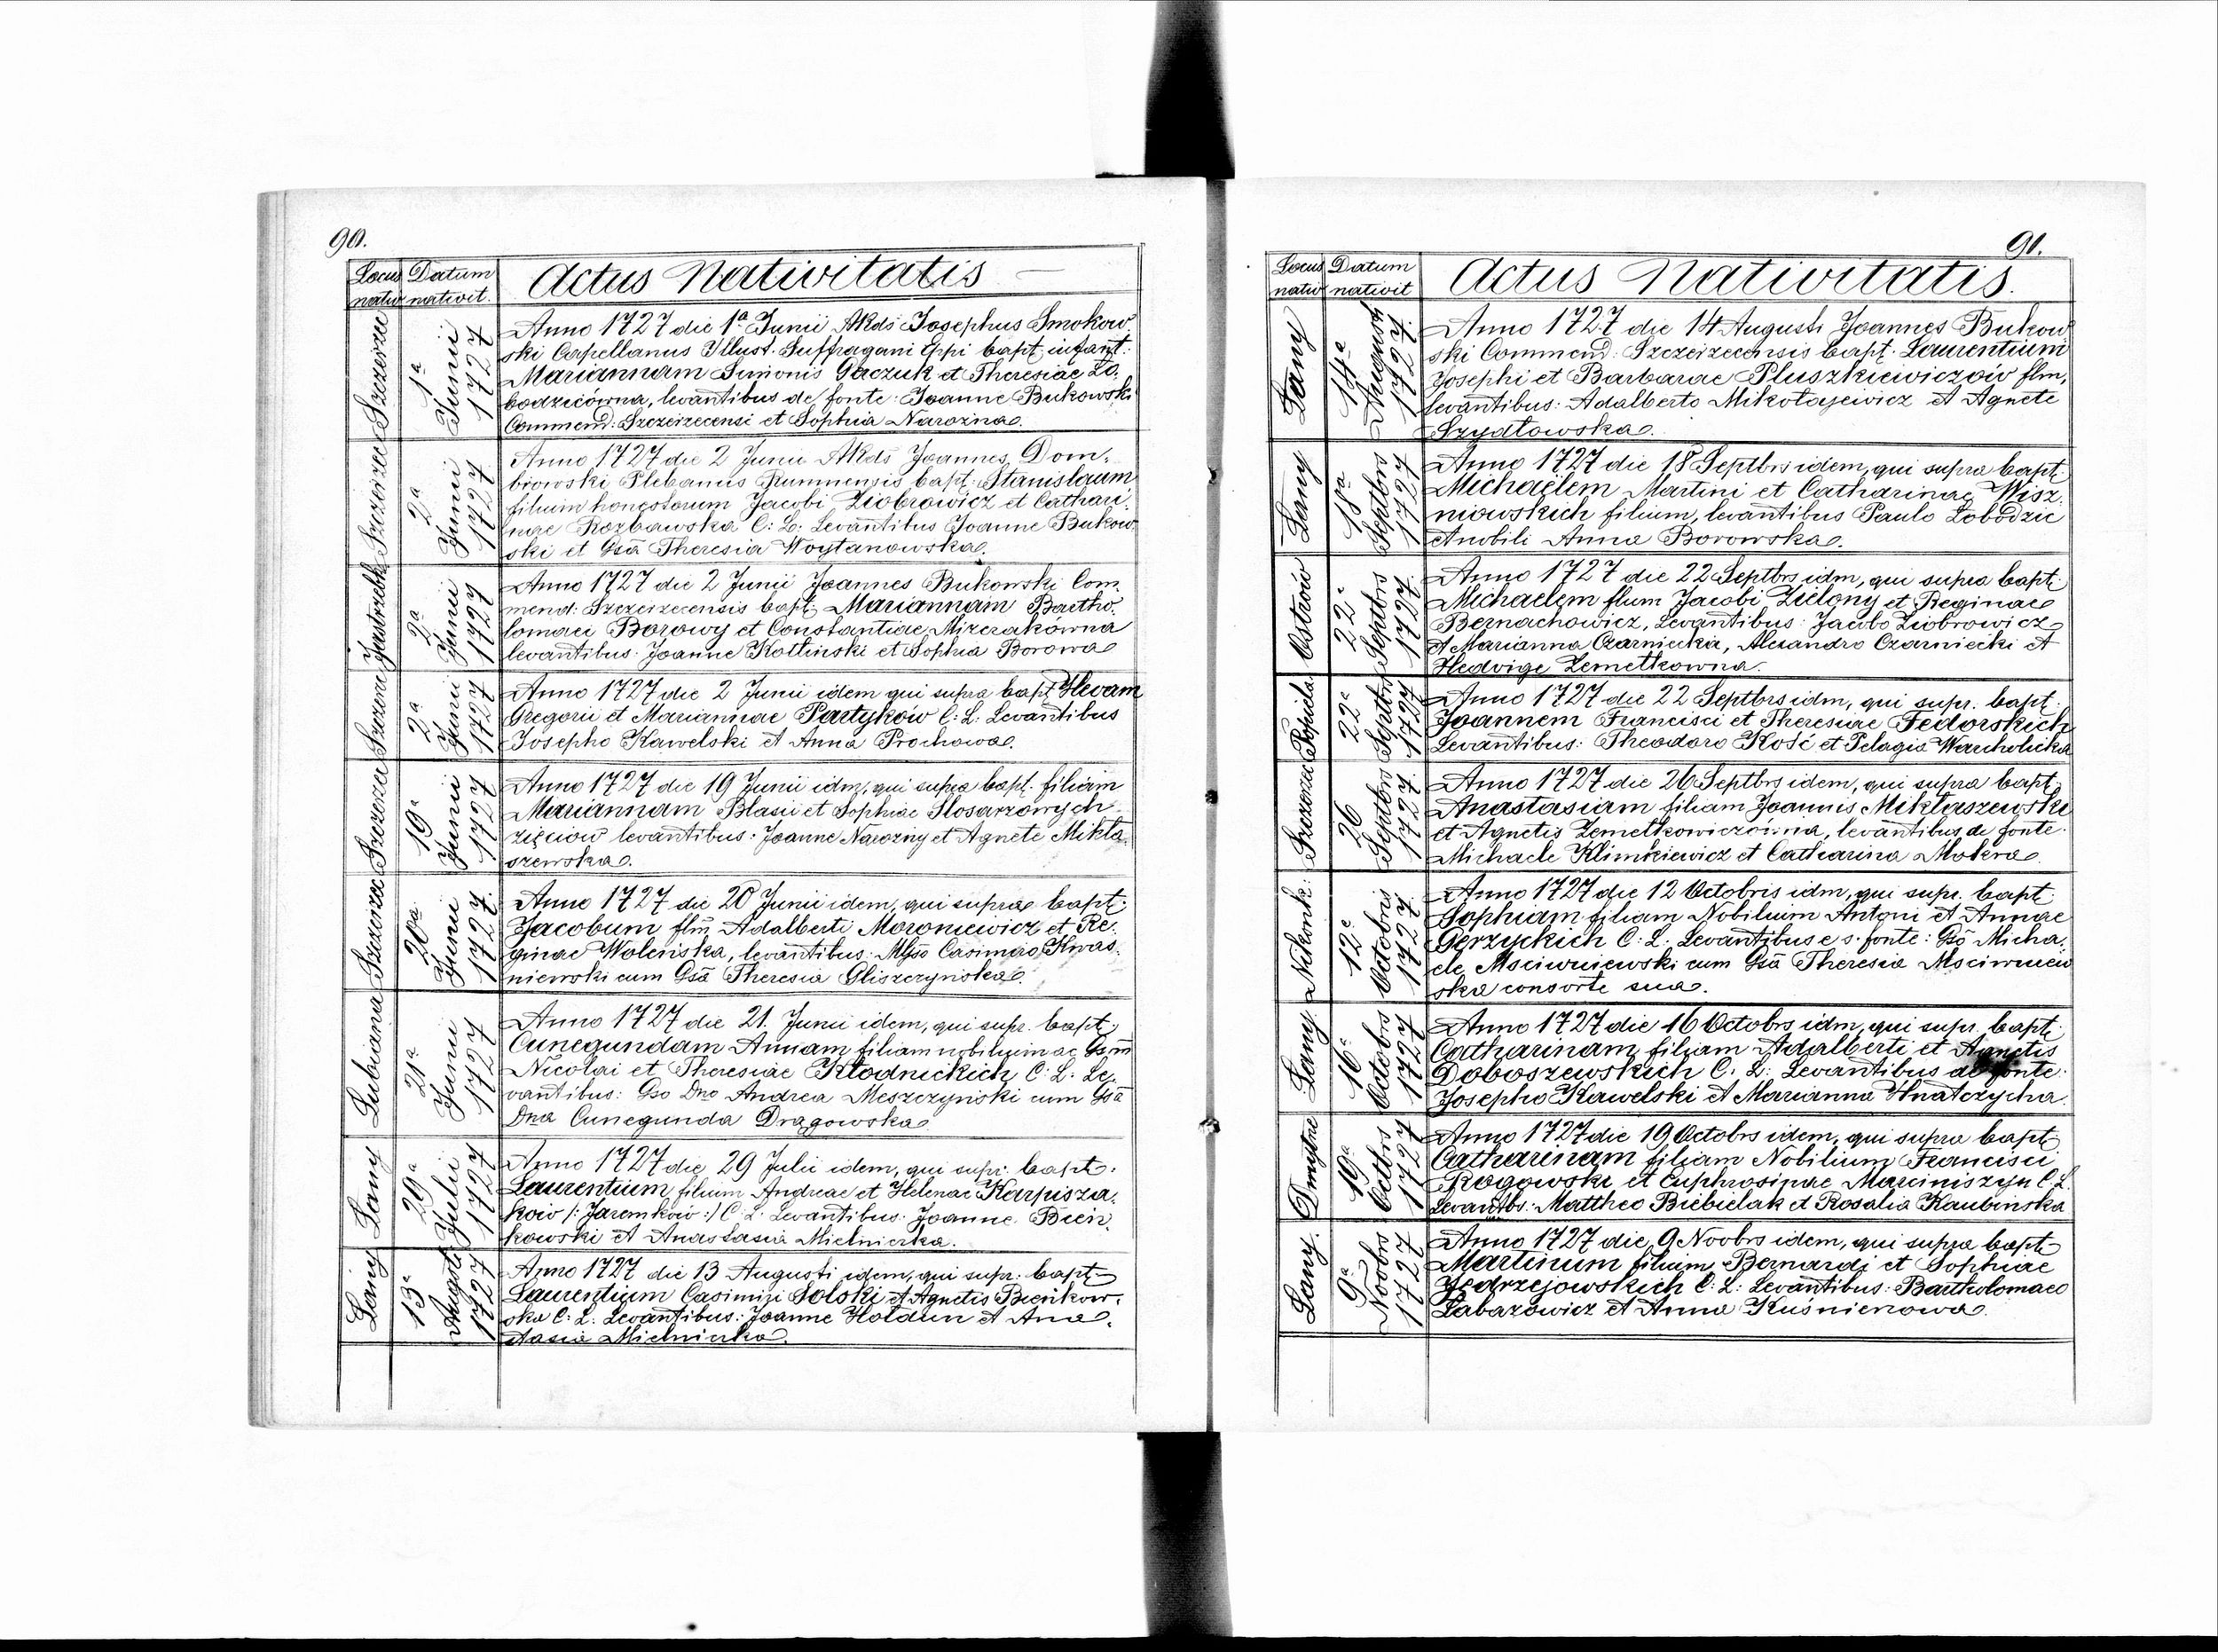 90.
Locus nativ
Datum nativit.
Actus Nativitatis —
Szczerzec
1ª Junii 1727
Anno 1727 die 1ª Junii ARds Josephus Smokow
ski Capellanus Illust. Suffragani Eppi bapt: infant:
Mariannam Simonis Gaczuk et Theresiae Ło,
bodzicowna, levantibus de fonte: Joanne Bukowski
Commend: Szczeirzecensi et Sophia Narozna.
Szczerzec
2ª Junii 1727
Anno 1727 die 2 Junii ARds Joannes Dom,
browski Plebanus Rumnensis bapt: Stanislaum
filium honestorum Jacobi Ziobrowicz et Cathari,
nae Rozbawska C: L: Levantibus Joanne Bukow
ski et Gsā Theresia Woytanowska.
Jastrzebk
2ª Junii 1727
Anno 1727 die 2 Junii Joannes Bukowski Com,
mend: Szczeirzecensis bapt: Mariannam Bartho,
lomaei Borowy et Constantiae Mizerakówna
levantibus: Joanne Kotlinski et Sophia Borowa
Szczerz
2ª Junii 1727
Anno 1727 die 2 Junii idem qui supra bapt Hevam
Gregorii et Mariannae Partyków C: L: Levantibus
Josepho Kawelski et Anna Prochowa.
Szczerze
19ª Junii 1727
Anno 1727 die 19 Junii idm, qui supra bapt. filiam
Mariannam Blasii et Sophiae Slosarzówych
zięciow levantibus: Joanne Narozny et Agnete Mikla,
szewska.
Szczerzec
20ª Junii 1727.
Anno 1727 die 20 Junii idem, qui supra bapt:
Jacobum flm̄ Adalberti Moroniewicz et Re,
ginae Woleńska, levantibus: Mgso Casimiro Kwas,
niewski cum Gsā Theresia Gliszczynska.
Lubiana
21ª Junii 1727
Anno 1727 die 21. Junii idem, qui supr. bapt:
Cunegundam Annam filiam nobilium ac Gsm̄
Nicolai et Theresiae Kłodnickich C: L: Le,
vantibus: Gso Dno Andrea Meszczynski cum Gsā
Dna Cunegunda Dragowska.
Łany
29ª Julii 1727
Anno 1727 die 29 Julii idem, qui supr: bapt:
Laurentium filium Andreae et Helenae Karpisza,
kow /: Jaremkow :/ C: L: Levantibus: Joanne Bień,
kowski et Anastasia Mielniczka.
Łany
13ª Augsti 1727
Anno 1727 die 13 Augusti idem, qui supr: bapt:
Laurentium Casimiri Solski et Agnetis Bieńkow,
ska C: L: Levantibus: Joanne Hołdun et Ana,
stasia Mielniczka.
91.
Locus nativ
Datum nativit
Actus Nativitatis.
Łany
14ª Augusti 1727.
Anno 1727 die 14 Augusti Joannes Bukow
ski Commend: Szczeirzecensis bapt: Laurentium
Josephi et Barbarae Pluszkiewiczów flm,
levantibus: Adalberto Mikołajewicz et Agnete
Szydłowska.
Łany
18ª Septbrs 1727
Anno 1727 die 18 Septbrs idem, qui supra bapt:
Michaëlem Martini et Catharinae Wisz,
niowskich filium, levantibus Paulo Łobodzic
et nobili Anna Borowska.
Ostrów
22ª Septbrs 1727.
Anno 1727 die 22 Septbrs idm, qui supra bapt:
Michaelem flum Jacobi Zielony et Reginae
Bernachowicz, Levantibus: Jacobo Ziobrowicz
et Marianna Czarniecka, Alexandro Czarniecki et
Hedvige Zemełkowna.
Popiela
22ª Septbrs 1727
Anno 1727 die 22 Septbrs idm, qui supr. bapt:
Joannem Francisci et Theresiae Fedorskich
Levantibus: Theodoro Kość et Pelagia Warcholicka
Szczerzec
26 Septbrs 1727.
Anno 1727 die 26 Septbrs idem, qui supra bapt:
Anastasiam filiam Joannis Miklaszewski
et Agnetis Zemełkowiczówna, levantibus de fonte:
Michaele Klimkiewicz et Catharina Mokra
Nikonk:
12ª Octobris 1727
Anno 1727 die 12 Octobris idm, qui supr. bapt:
Sophiam filiam Nobilium Antoni et Annae
Gerzyckich C: L. Levantibus e s. fonte: Gsō Micha,
ele Msciwuiewski cum Gsā Theresia Msciwuiew
ska consorte sua.
Łany
16ª Octobrs 1727
Anno 1727 die 16 Octobrs idm, qui supr. bapt:
Catharinam filiam Adalberti et Agnetis
Doboszewskich C. L: Levantibus de fonte:
Josepho Kawelski et Marianna Hnatczycha.
Dmytre
19ª Octbrs 1727
Anno 1727 die 19 Octobrs idem, qui supra bapt:
Catharinam filiam Nobilium Francisci
Rogowski et Euphrosinae Marciniszyn C: L.
Levantbs: Mattheo Biebielak et Rosalia Kaubinska
Łany.
9ª Novbrs 1727
Anno 1727 die 9 Novbrs idem, qui supra bapt:
Martinum filium Bernardi et Sophiae
Jędrzejowskich C: L: Levantibus: Bartholomaeo
Łabazowicz et Anna Kuśnierowa.